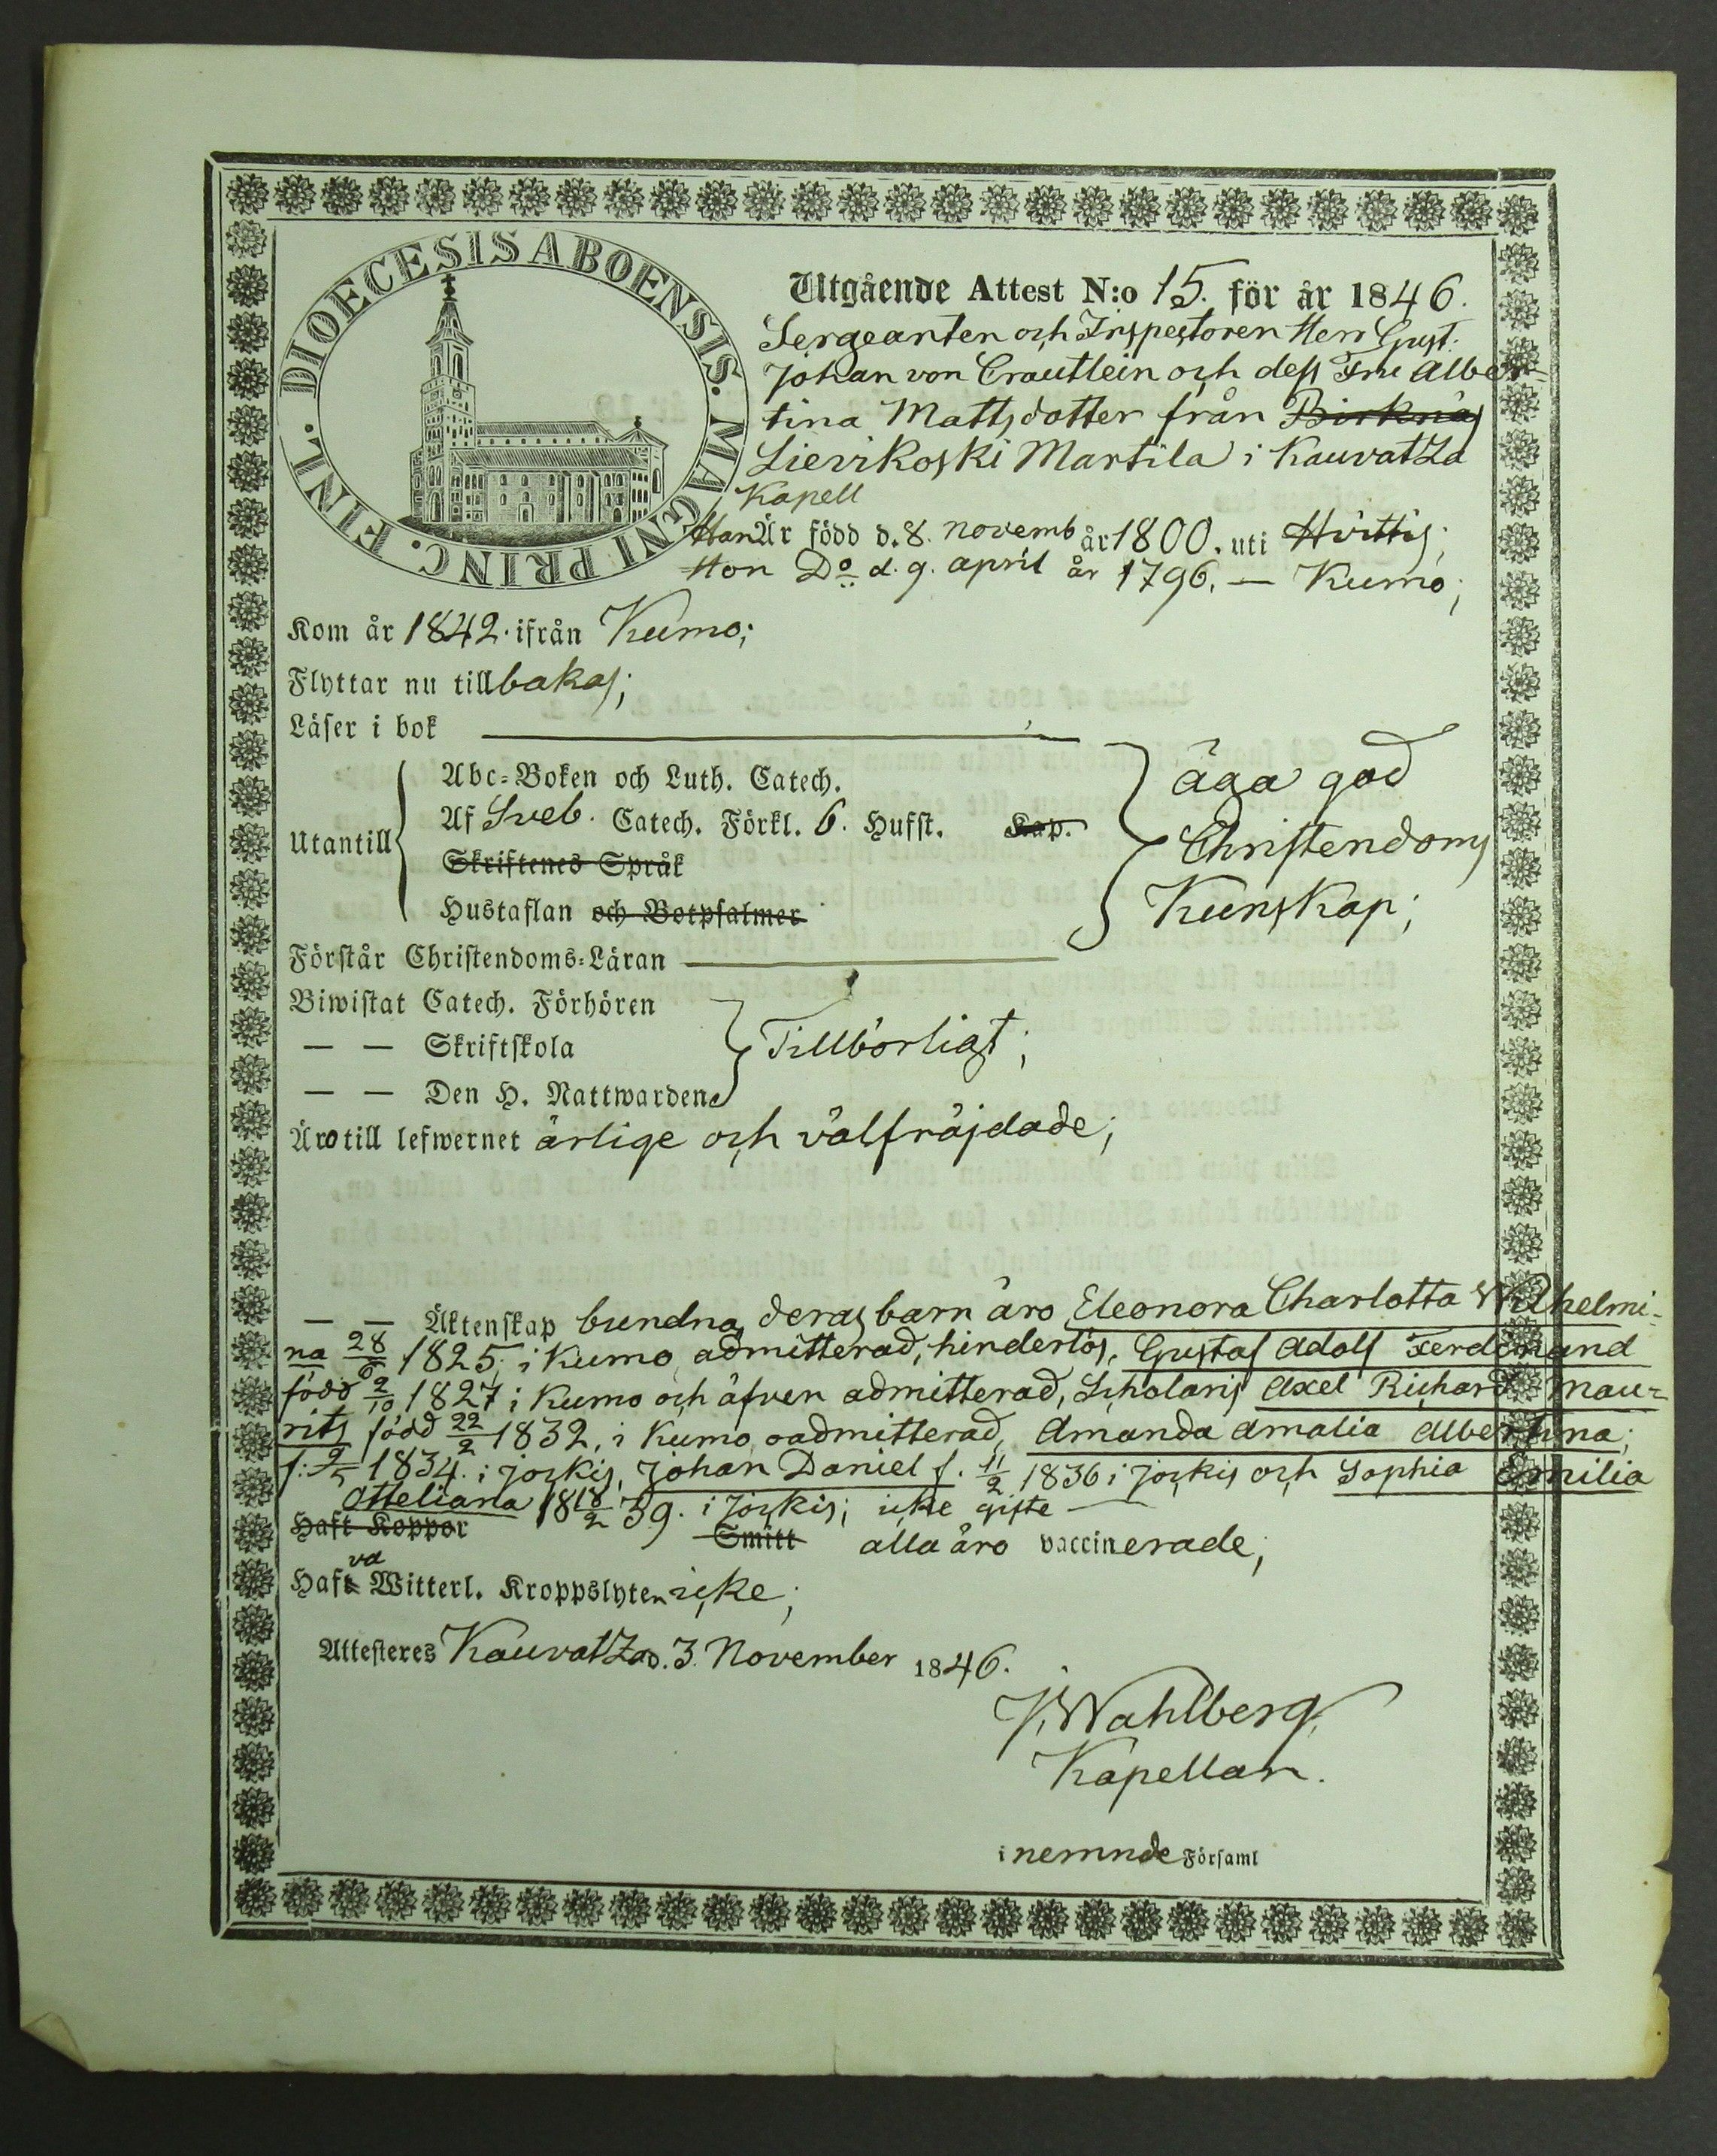 DIOECESIS ABOENSIS. MAGNI PRINC. FINL.
Utgående Attest N:o 15. för år 1846.
Sergeanten och Inspectoren Herr Gust.
Johan von Crautlein och dess Fru Alber-
tina Mattsdotter från Birknäs
Lievikoski Martila i Kauvatza
Kapell
Han Är född d. 8. novemb år 1800. uti Hvittis;
Hon Do d. 9. april år 1796. — Kumo;
Kom år 1842. ifrån Kumo;
Flyttar nu tillbakas;
Läser i bok
Abc-Boken och Luth. Catech.
Utantill Af Sveb. Catech. Förkl. 6. Hufst. Kap.
Skriftenes Språk
Hustaflan och Botpsalmer
äga god
Christendoms
Kunskap;
Förstår Christendoms-Läran
Biwistat Catech. Förhören
— — Skriftskola
— — Den H. Nattwarden
Tillbörligt;
Äro till lefwernet ärlige och välfräjdade;
— — Äktenskap bundna, deras barn äro Eleonora Charlotta Wilhelmi-
na 28/6 1825, i Kumo, admitterad, hinderlös, Gustaf Adolf Ferdinand
född 2/10 1827 i Kumo och äfven admitterad, Scholaris Axel Richard Mau-
rits född 22/2 1832, i Kumo, oadmitterad, Amanda Amalia Albertina;
f: 2/5 1834. i Jockis, Johan Daniel f. 11/2 1836 i Jockis och Sophia Emilia
Otteliana 18 18/2 39. i Jockis; icke gifte —
Haft Koppor Smitt alla äro vaccinerade;
Hafva Witterl. Kroppslyten icke;
Attesteres Kauvatza d. 3. November 1846.
J. Wahlberg,
Kapellan.
i nemnde Församl